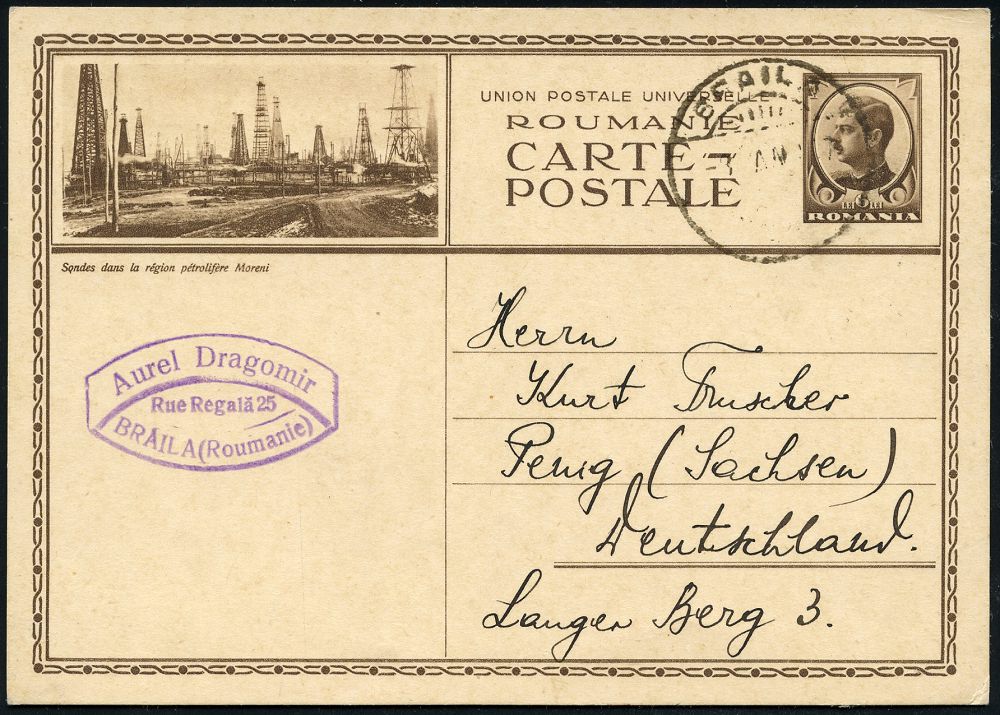 UNION POSTALE UNIVERSELLE
ROUMANIE
CARTE
POSTALE
BRAILA
6
LEI LEI
ROMANIA
Sondes dans la région pétrolifère Moreni
Aurel Dragomir
Rue Regală 25
BRĂILA (Roumanie)
Herrn
Kurt
Penig (Sachsen)
Deutschland.
Langer Berg 3.